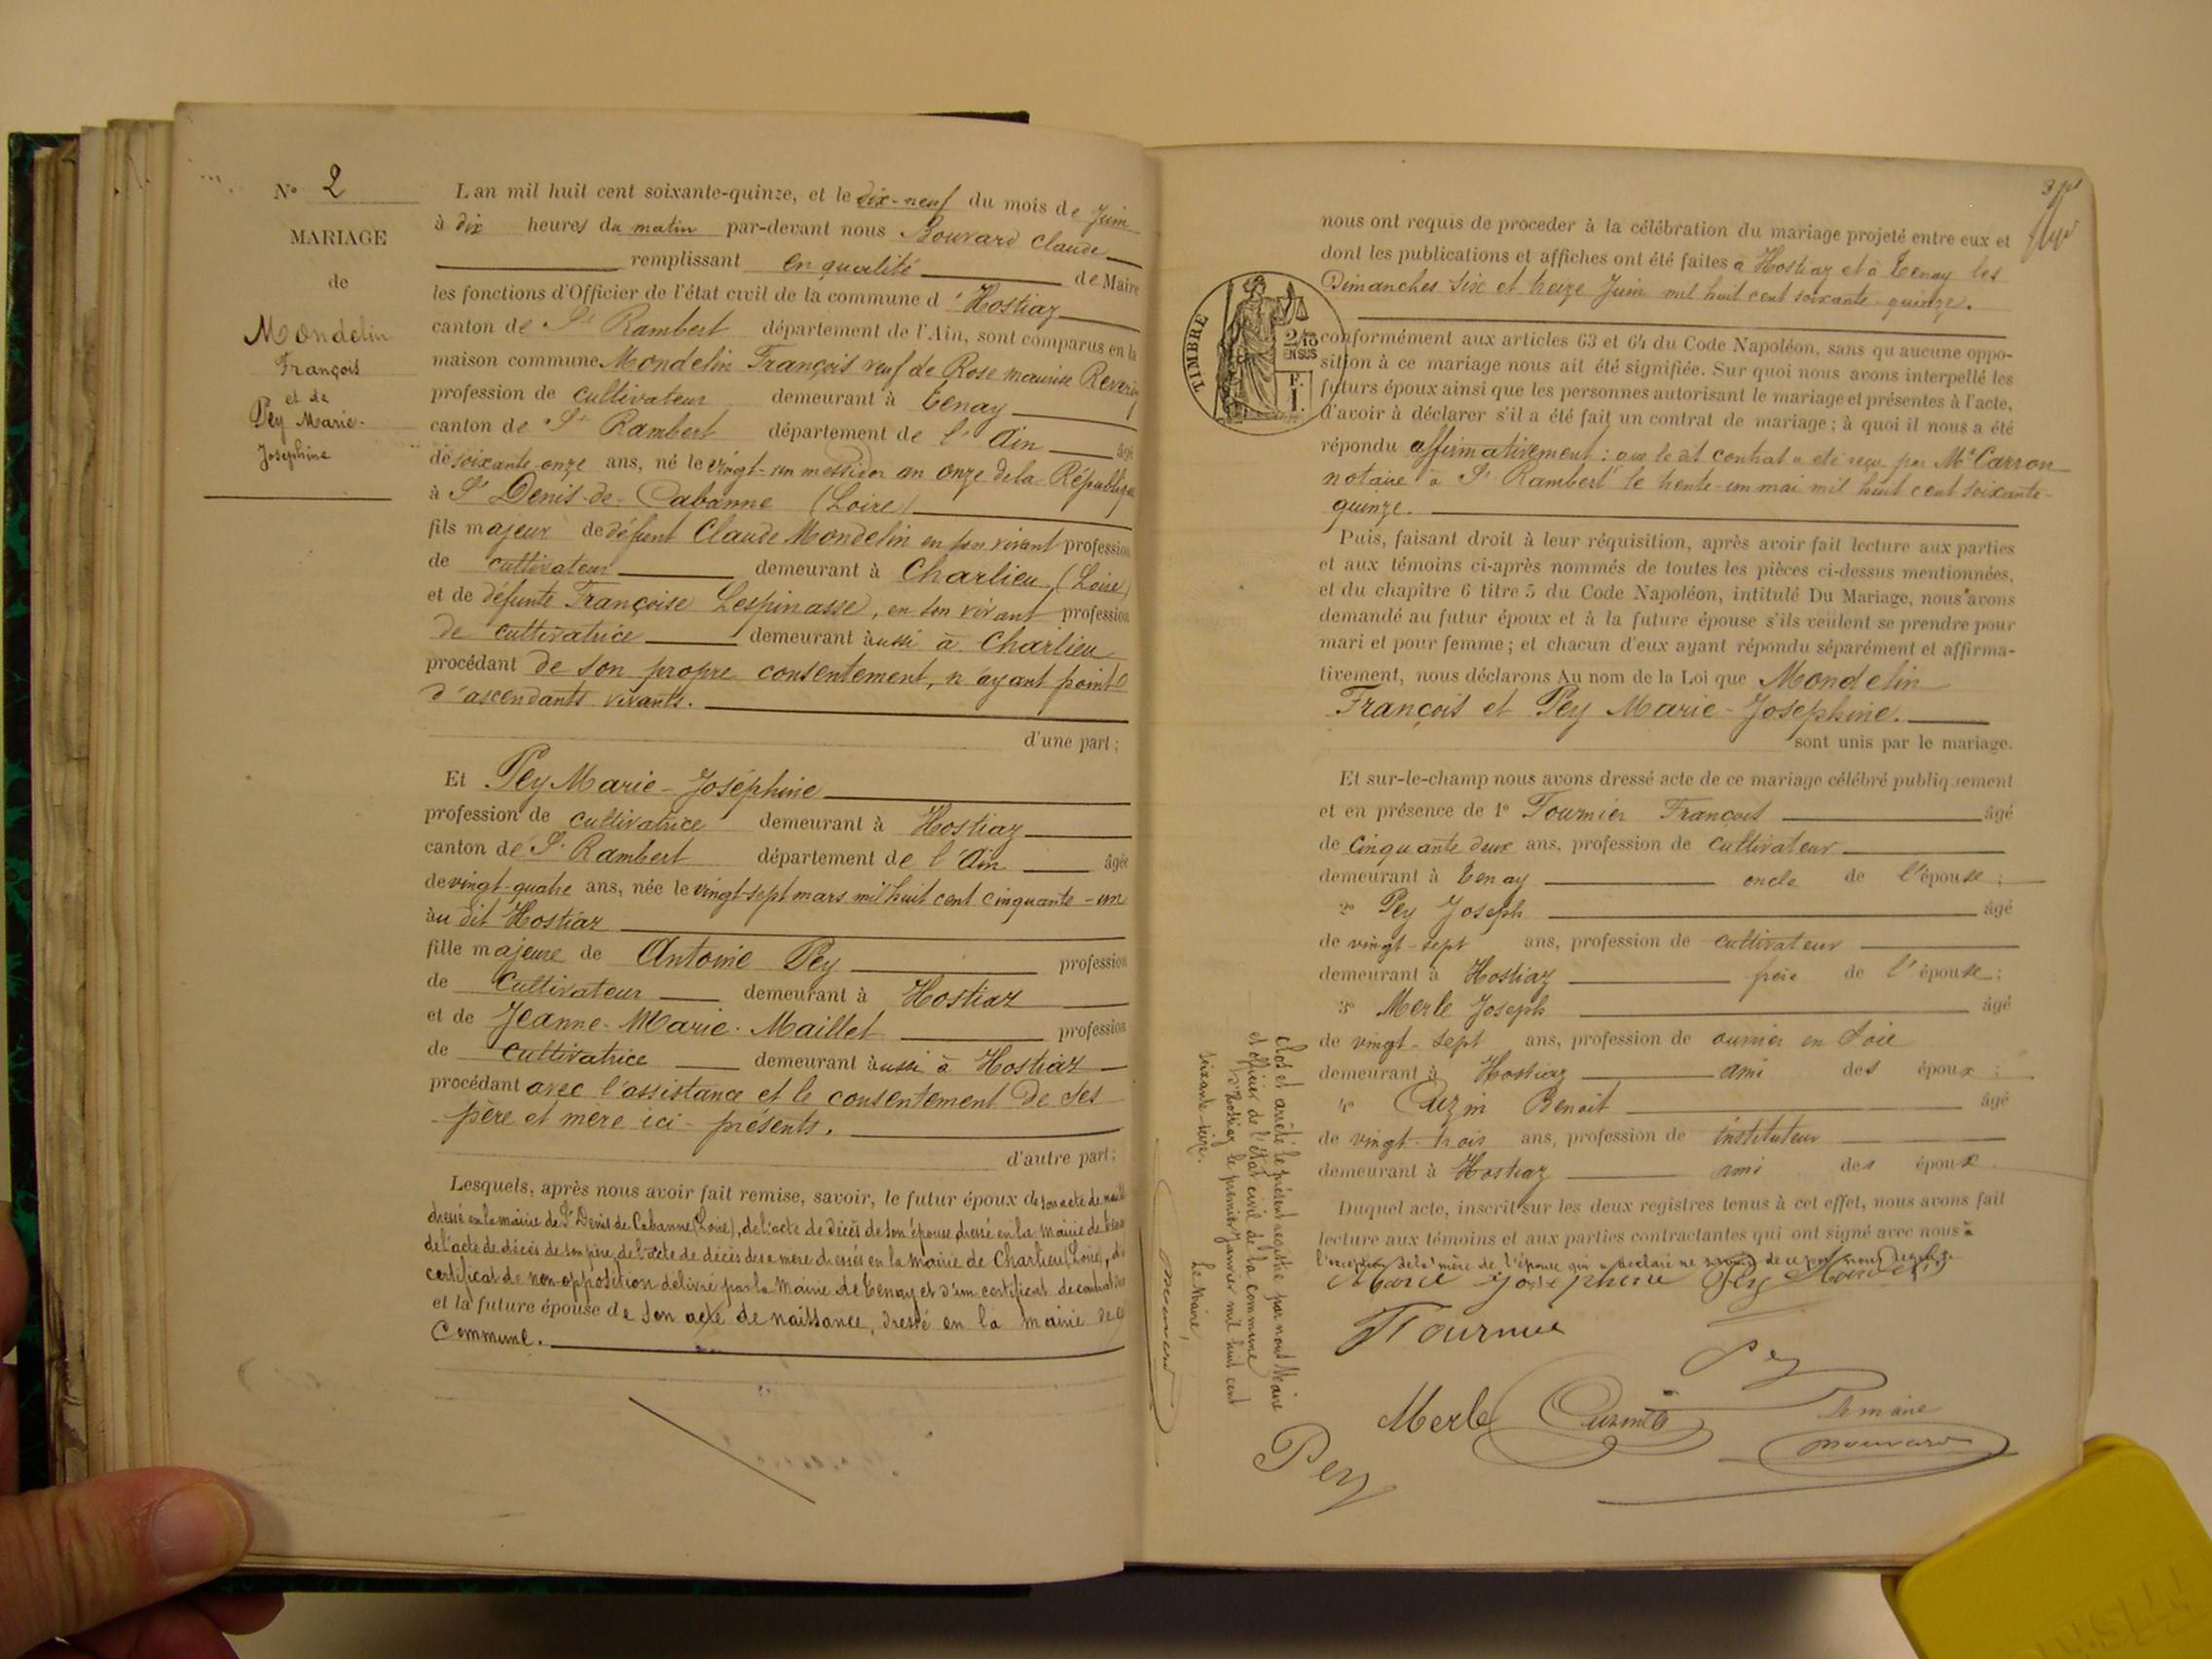 N° 2
MARIAGE
de
Mondelin
François
et de
Pey Marie-
Joséphine
L'an mil huit cent soixante-quinze, et le dix-neuf du mois de Juin
à dix heures du matin par-devant nous Bouvard Claude
remplissant en qualité de Maire
les fonctions d'Officier de l'état civil de la commune d'Hostiaz
canton de St Rambert département de l'Ain, sont comparus en la
maison commune Mondelin François veuf de Rose maurise
profession de cultivateur demeurant à Tenay
canton de St Rambert département de l'Ain âgé
de soixante onze ans, né le vingt-un messidor an onze de la République
à St Denis-de-Cabanne (Loire)
fils majeur de défunt Claude Mondelin en son vivant profession
de cultivateur demeurant à Charlieu (Loire)
et de défunte Françoise Lespinasse, en son vivant profession
de cultivatrice demeurant aussi à Charlieu
procédant de son propre consentement, n'ayant point
d'ascendants vivants.
d'une part;
Et Pey Marie-Joséphine
profession de cultivatrice demeurant à Hostiaz
canton de St Rambert département de l'Ain âgée
de vingt-quatre ans, née le vingt-sept mars mil huit cent cinquante-un
au dit Hostiaz
fille majeure de Antoine Pey profession
de Cultivateur demeurant à Hostiaz
et de Jeanne-Marie-Maillet profession
de cultivatrice demeurant aussi à Hostiaz
procédant avec l'assistance et le consentement de ses
père et mère ici-présents.
d'autre part;
Lesquels, après nous avoir fait remise, savoir, le futur époux de son acte de
dressé en la mairie de St Denis de Cabanne (Loire), de l'acte de décès de son épouse dressé en la mairie de
de l'acte de décès de son père, de l'acte de décès de sa mère dressés en la mairie de Charlieu (Loire), d
certificat de non-opposition délivré par la Mairie de Tenay et d'un certificat de contrat
et la future épouse de son acte de naissance, dressé en la mairie de
Commune.
nous ont requis de proceder à la célébration du mariage projeté entre eux et
dont les publications et affiches ont été faites à Hostiaz et à Tenay les
Dimanches six et treize Juin mil huit cent soixante-quinze.
TIMBRE
2/10
EN SUS
F.
1.
conformément aux articles 63 et 64 du Code Napoléon, sans qu'aucune oppo-
sition à ce mariage nous ait été signifiée. Sur quoi nous avons interpellé les
futurs époux ainsi que les personnes autorisant le mariage et présentes à l'acte,
d'avoir à déclarer s'il a été fait un contrat de mariage; à quoi il nous a été
répondu affirmativement: que le dit contrat a été reçu par Me Carron
notaire à St Rambert le trente-un mai mil huit cent soixante-
quinze.
Puis, faisant droit à leur réquisition, après avoir fait lecture aux parties
et aux témoins ci-après nommés de toutes les pièces ci-dessus mentionnées,
et du chapitre 6 titre 5 du Code Napoléon, intitulé Du Mariage, nous avons
demandé au futur époux et à la future épouse s'ils veulent se prendre pour
mari et pour femme; et chacun d'eux ayant répondu séparément et affirma-
tivement, nous déclarons Au nom de la Loi que Mondelin
François et Pey Marie-Joséphine.
sont unis par le mariage.
Et sur-le-champ nous avons dressé acte de ce mariage célébré publiquement
et en présence de 1° Fournier François âgé
de cinquante deux ans, profession de cultivateur
demeurant à Tenay oncle de l'épouse;
2° Pey Joseph âgé
de vingt-sept ans, profession de cultivateur
demeurant à Hostiaz frère de l'épouse;
3° Merle Joseph âgé
de vingt-sept ans, profession de ouvrier en soie
demeurant à Hostiaz ami des époux;
4° Cuzin Benoit âgé
de vingt-trois ans, profession de instituteur
demeurant à Hostiaz ami des époux.
Duquel acte, inscrit sur les deux registres tenus à cet effet, nous avons fait
lecture aux témoins et aux parties contractantes qui ont signé avec nous à
l'exception de la mère de l'épouse qui a déclaré ne savoir de ce par nous
Marie Josephine Pey
Pey
Merle
Le Maire
Pey
Clos et arrêté le présent registre par nous Maire
et officier de l'état civil de la commune
d'Hostiaz le premier Janvier mil huit cent
soixante-seize.
Le Maire,